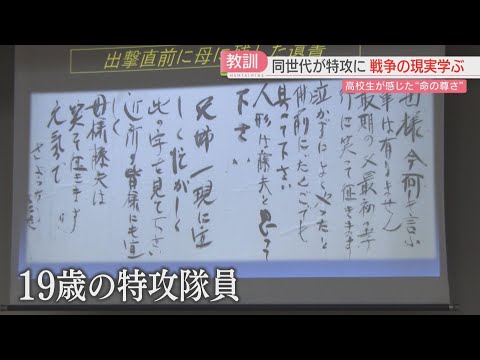 教訓
同世代が特攻に 戦争の現実学ぶ
高校生が感じた“命の尊さ”
出撃直前に母に残した遺書
母様 今何も言ふ
事は有りません
最期の又最初の孝
行に笑って征きます
泣かずによくやったと
佛前にだんごでも
具へて下さい
人形は藤夫と思って
下さい
兄姉一
宜
しく忙がしく
此の字を見て下さい
近所の皆様にも宜
しく
母様藤夫は
笑って征きます
元気で
19歳の特攻隊員